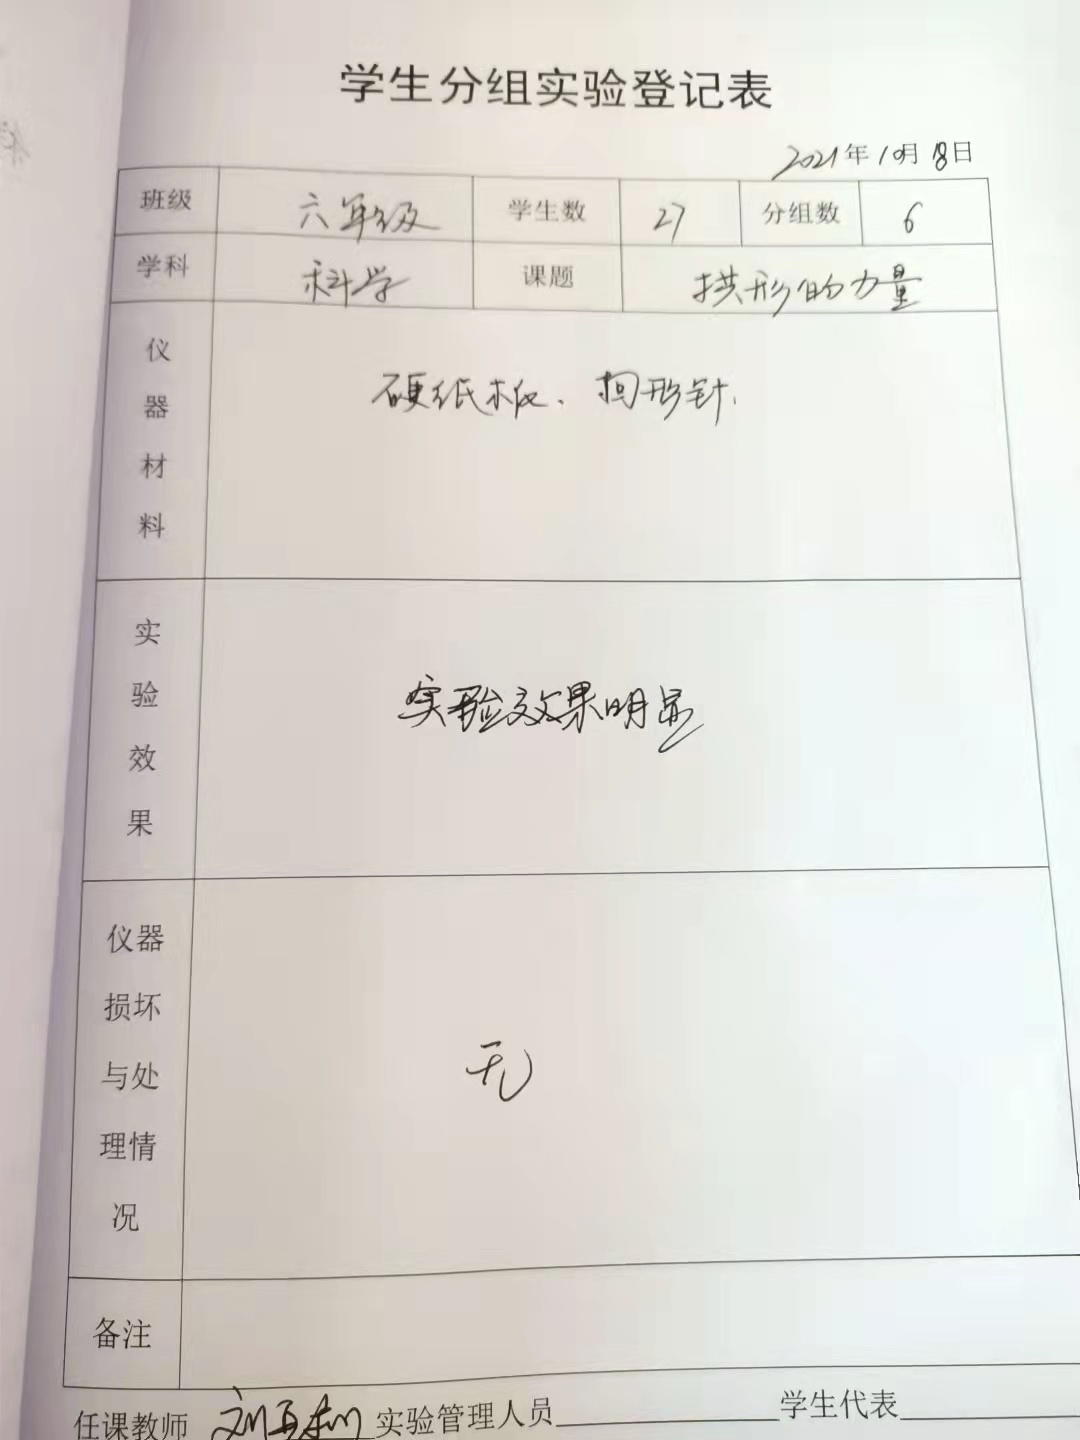 学生分组实验登记表
2021年10月18日
班级 六年级 学生数 27 分组数 6
学科 科学 课题 拱形的力量
仪器材料 硬纸板、回形针.
实验效果 实验效果明显
仪器损坏与处理情况 无
备注
任课教师 刘 实验管理人员 学生代表